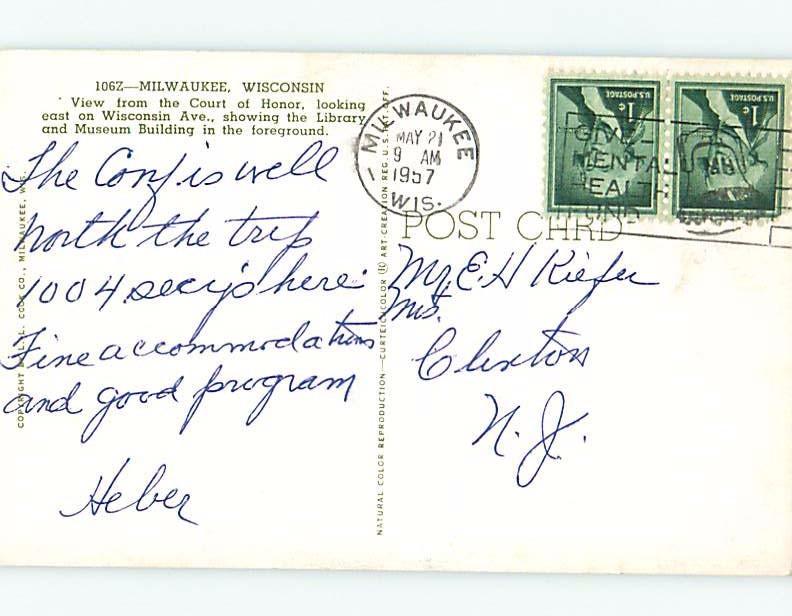 106Z—MILWAUKEE, WISCONSIN
View from the Court of Honor, looking
east on Wisconsin Ave., showing the Library
and Museum Building in the foreground.
The Conf is well
worth the trip
1004 secy's here.
Fine accommodations
and good program
Heber
MILWAUKEE
MAY 21
9 AM
1957
WIS.
U.S. POSTAGE
1c
U.S. POSTAGE
1c
GIVE
MENTAL
HEALTH
FUND
POST CARD
Mr. E. H Kiefer
Mrs.
Clinton
N. J.
NATURAL COLOR REPRODUCTION—CURTEICHCOLOR ® ART-CREATION REG. U.S. PAT. OFF.
COOK CO., MILWAUKEE, WIS.